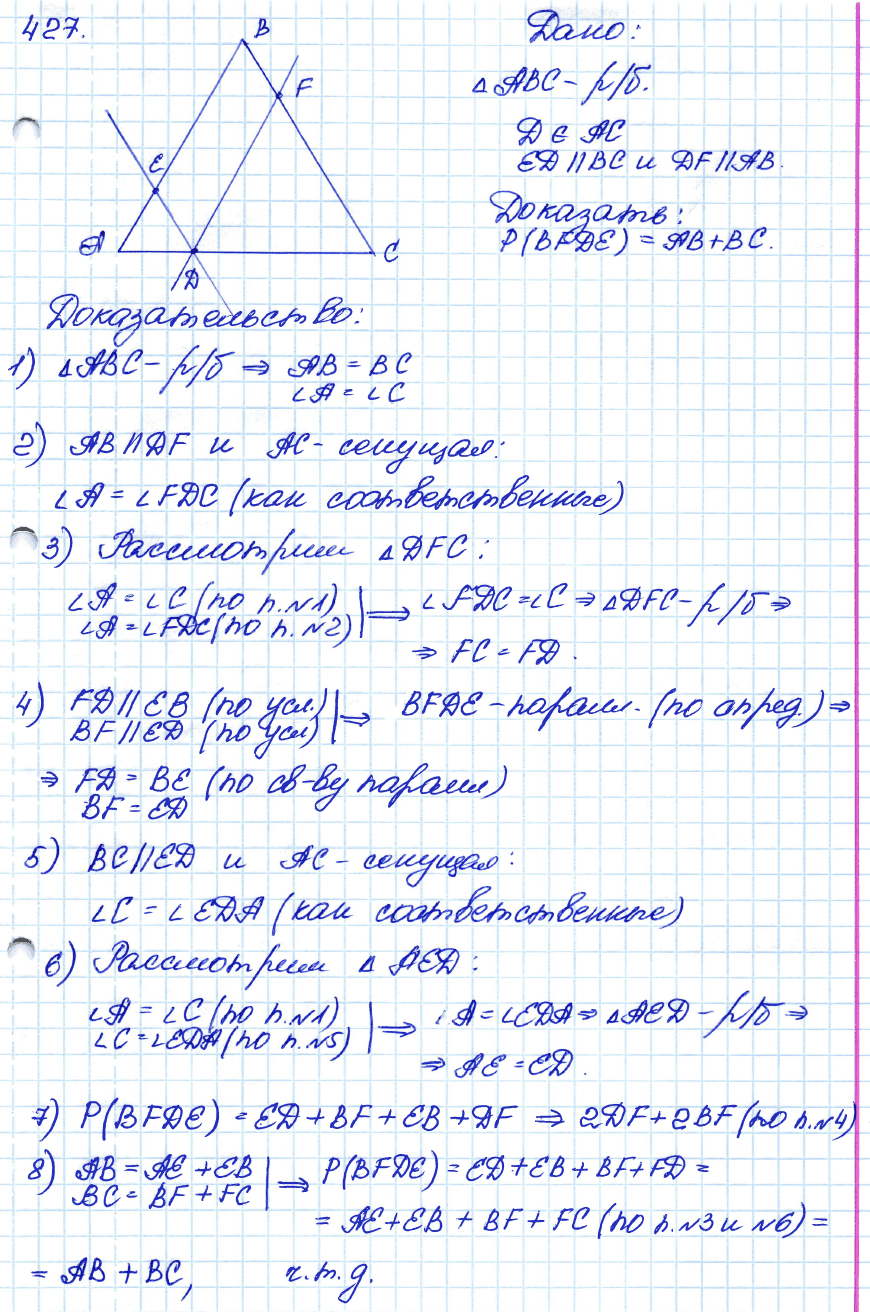 427.
B
F
E
A
D
C
Дано:
△ABC - р/б.
D ∈ AC
ED || BC и DF || AB.
Доказать:
P(BFDE) = AB + BC.
Доказательство:
1) △ABC - р/б ⇒ AB = BC
∠A = ∠C
2) AB || DF и AC - секущая:
∠A = ∠FDC (как соответственные)
3) Рассмотрим △DFC:
∠A = ∠C (по п.№1) | ⇒ ∠FDC = ∠C ⇒ △DFC - р/б ⇒
∠A = ∠FDC (по п.№2)
⇒ FC = FD.
4) FD || EB (по усл.) | ⇒ BFDE - паралл. (по опред.) ⇒
BF || ED (по усл)
⇒ FD = BE (по св-ву паралл)
BF = ED
5) BC || ED и AC - секущая:
∠C = ∠EDA (как соответственные)
6) Рассмотрим △AED:
∠A = ∠C (по п.№1) | ⇒ ∠A = ∠EDA ⇒ △AED - р/б ⇒
∠C = ∠EDA (по п.№5)
⇒ AE = ED.
7) P(BFDE) = ED + BF + EB + DF ⇒ 2DF + 2BF (по п.№4)
8) AB = AE + EB | ⇒ P(BFDE) = ED + EB + BF + FD =
BC = BF + FC
= AE + EB + BF + FC (по п.№3 и №6) =
= AB + BC, ч.т.д.